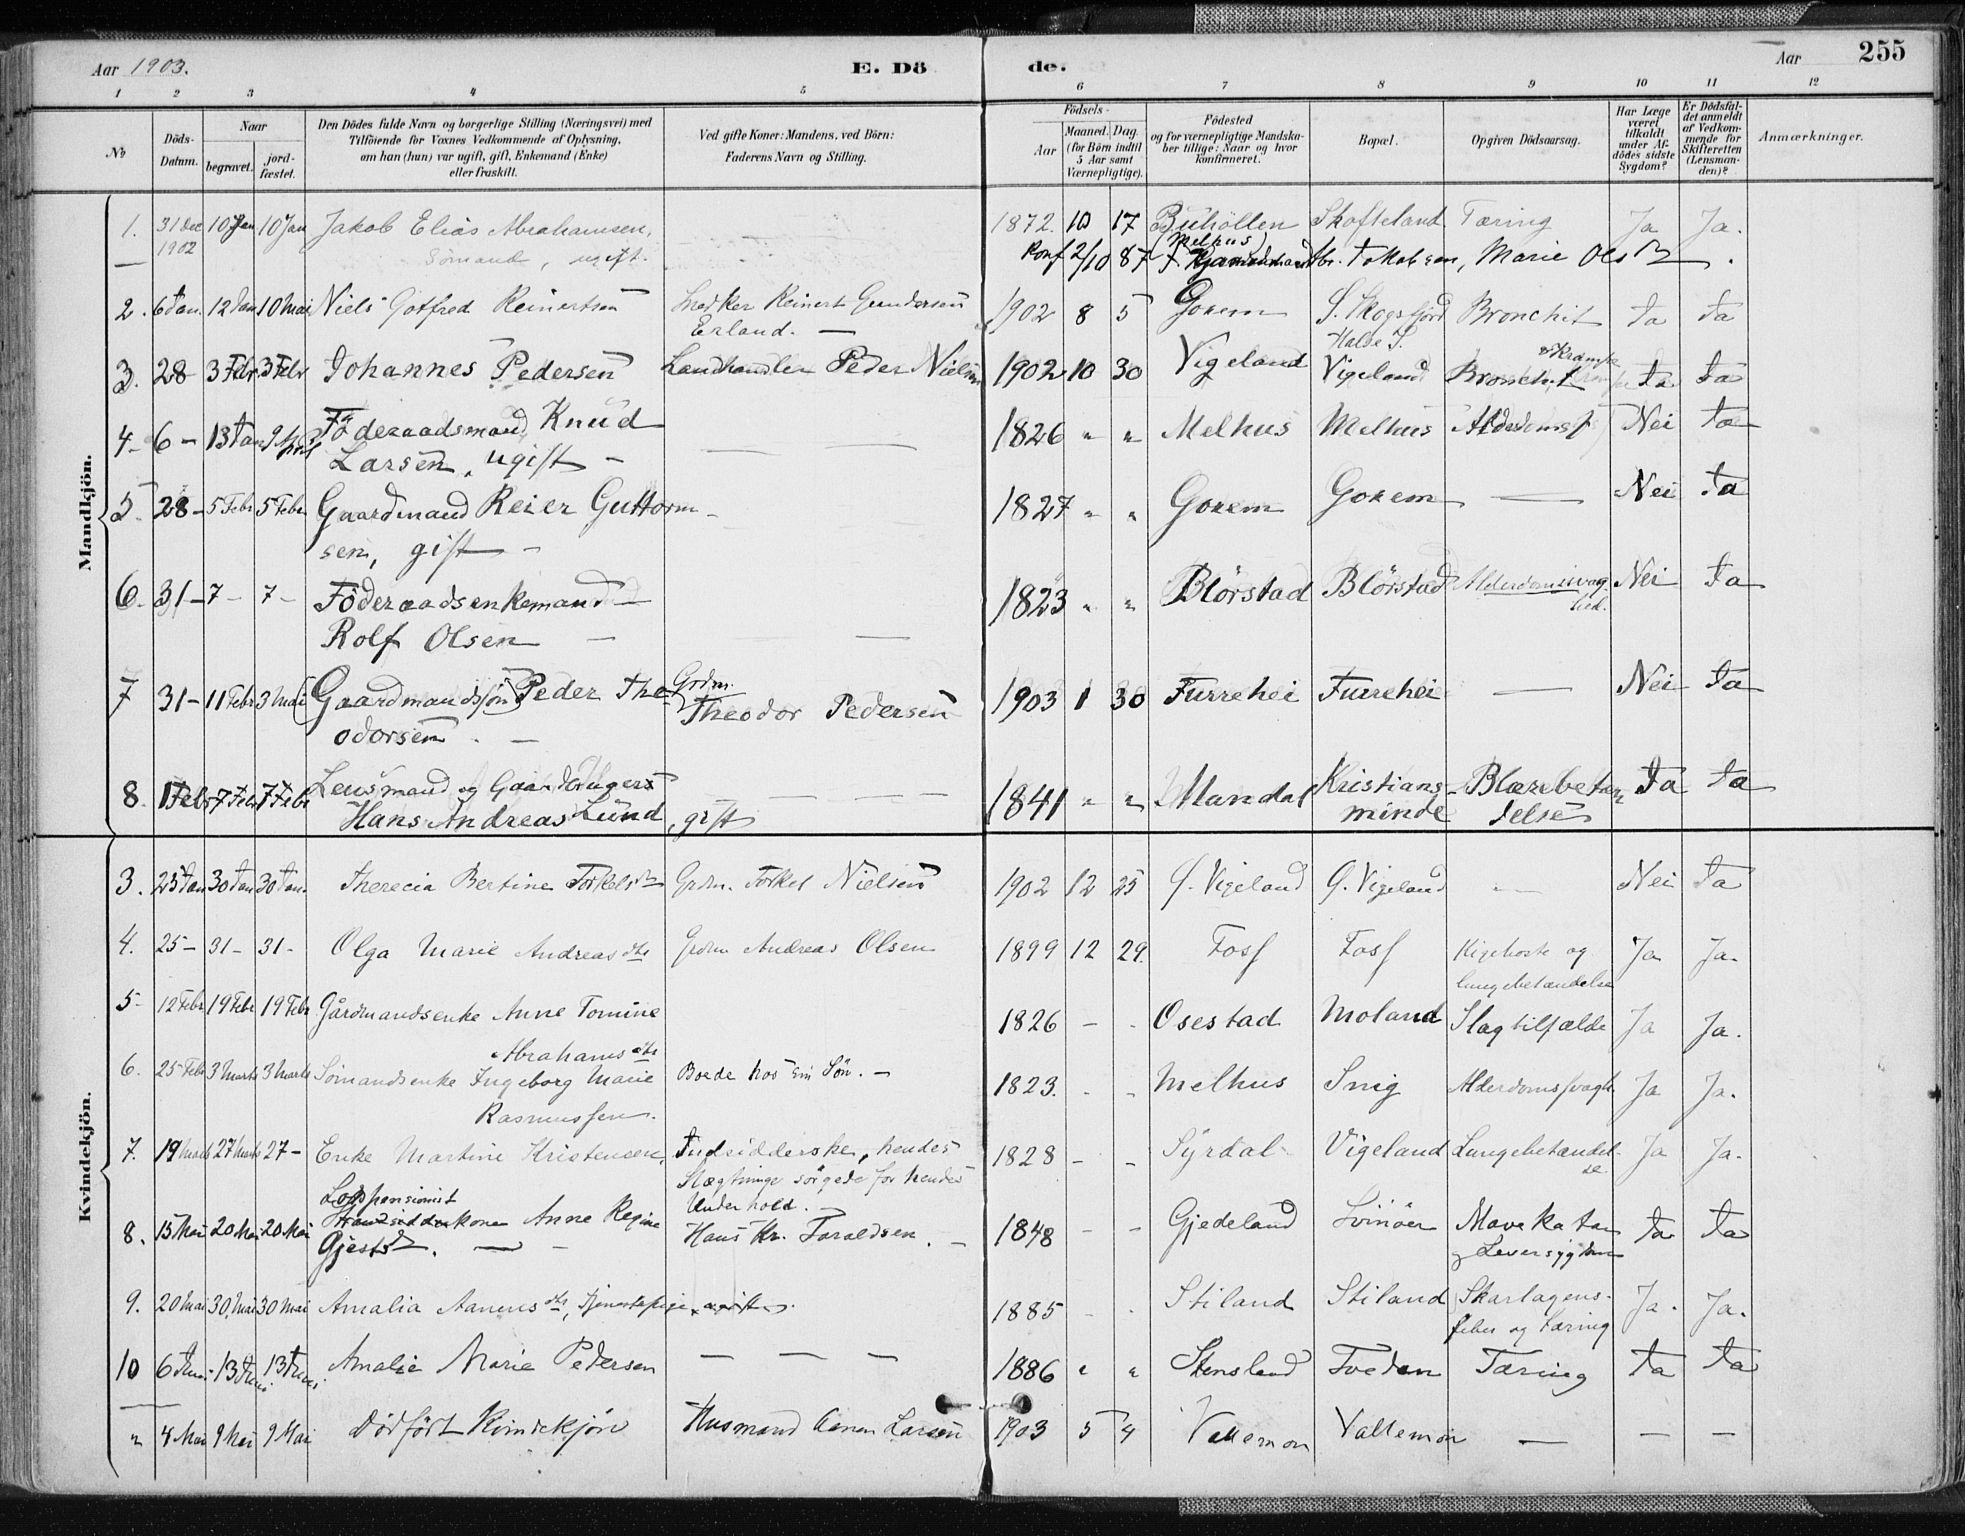 Aar 1903. E. Dö de. Aar 255
1 2 3 4 5 6 7 8 9 10 11 12
No
Döds-Datum.
Naar begravet. jordfæstet.
Den Dödes fulde Navn og borgerlige Stilling (Næringsvei) med
Tilföiende for Voxnes Vedkommende af Oplysning,
om han (hun) var ugift, gift, Enkemand (Enke)
eller fraskilt.
Ved gifte Koner: Mandens, ved Börn:
Faderens Navn og Stilling.
Födsels-
Aar Maaned. Dag.
(for Börn indtil 5 Aar samt Værnepligtige).
Födested
og for værnepligtige Mandskaber tillige: Naar og hvor konfirmeret.
Bopæl.
Opgiven Dödsaarsag.
Har Læge været tilkaldt under Afdödes sidste Sygdom?
Er Dödsfaldet anmeldt af Vedkommende for Skifteretten (Lensmanden)?
Anmærkninger.
Mandkjön.
1. 31 Dec 10 Jan 10 Jan Jakob Elias Abrahamsen, 1872. 10 17 Buhöllen Skofteland Tæring Ja Ja.
1902 Sömand, ugift. (Melhus)
Konf 2/10 87 Marie Olsdtr.
2. 6 Jan. 12 Jan 10 Mai Niels Gotfred Reinertsen Reinert Gundersen 1902 8 5 Gorem S. Skogsfjord Bronchit Ja Ja
Erland. — Halde S.
3. 28 3 Febr 3 Febr Johannes Pedersen Landhandler Peder Nielsen 1902 10 30 Vigeland Vigeland Bronchit & Krampe Ja Ja
4. 6 - 13 Jan 9 April Föderaadsmand Knud 1826 " " Melhus Melhus Alderdomss Nei Ja
Larsen, ugift -
5. 28 - 5 Febr 5 Febr Gaardmand Reier Guttorm- 1827 " " Gorem Gorem — Nei Ja
sen, gift -
6. 31 - 7 - 7 - Föderaadsenkemand 1823 " " Blörstad Blörstad Alderdomssvag- Nei Ja
Rolf Olsen hed.
7 31 - 11 Febr 3 Mai (Gaardmandssön) Peder The- Grdm. 1903 1 30 Furrehei Furrehei — Nei Ja
odorsen. Theodor Pedersen
8. 1 Febr 7 Febr 7 Febr Lensmand og Gaardbruger 1841 " " Mandal Kristians- Blærebetæn- Ja Ja
Hans Andreas Lund, gift minde delse
Kvindekjön.
3. 25 Jan 30 Jan 30 Jan. Therecia Bertine Torkelsdtr Grdm. Torkel Nielsen 1902 12 25 G. Vigeland G. Vigeland — Nei Ja
4. 25 - 31 - 31 - Olga Marie Andreasdtr Grdm Andreas Olsen 1899 12 29. Foss Foss Kighoste og Ja Ja.
lungebetændelse
5 - 12 Febr 19 Febr 19 Febr Gårdmandsenke Anne Tomine 1826 - - Osestad Moland Slagtilfælde Ja Ja.
Abrahamsdtr
6. 25 Febr 3 Marts 3 Marts Sömandsenke Ingeborg Marie Boede hos sin Sön. - 1823. - - Melhus Snig Alderdomssvagh. Ja Ja.
Rasmussen.
7. 19 Marts 27 Marts 27 - Enke Martine Kristensen, Indsidderske, hendes 1828 - - Syrdal Vigeland Lungebetændel- Ja Ja.
Slægtninge sörgede for hendes se
Underhold. -
Lospensionist
8. 15 Mai 20 Mai 20 Mai Strandsidderkone Anne Regine Hans Kr. Taraldsen. - 1848 - - Gjedeland Svinöer Mavekatar Ja Ja
Gjestsdtr. — - og Leversygdom
9. 20 Mai 30 Mai 30 Mai Amalia Aanensdtr, Tjenestepige, ugift. 1885 - - Stiland Stiland Skarlagens- Ja. Ja.
feber og tæring
10 6 Juni 13 Juni 13 Juni Amalie Marie Pedersen — — — 1886 " " Stensland Tveden Tæring Ja Ja
" 4 Mai 9 Mai 9 Mai Dödfödt Kvindekjön Husmand Aanen Larsen 1903 5 4 Vallemon Vallemon — — —